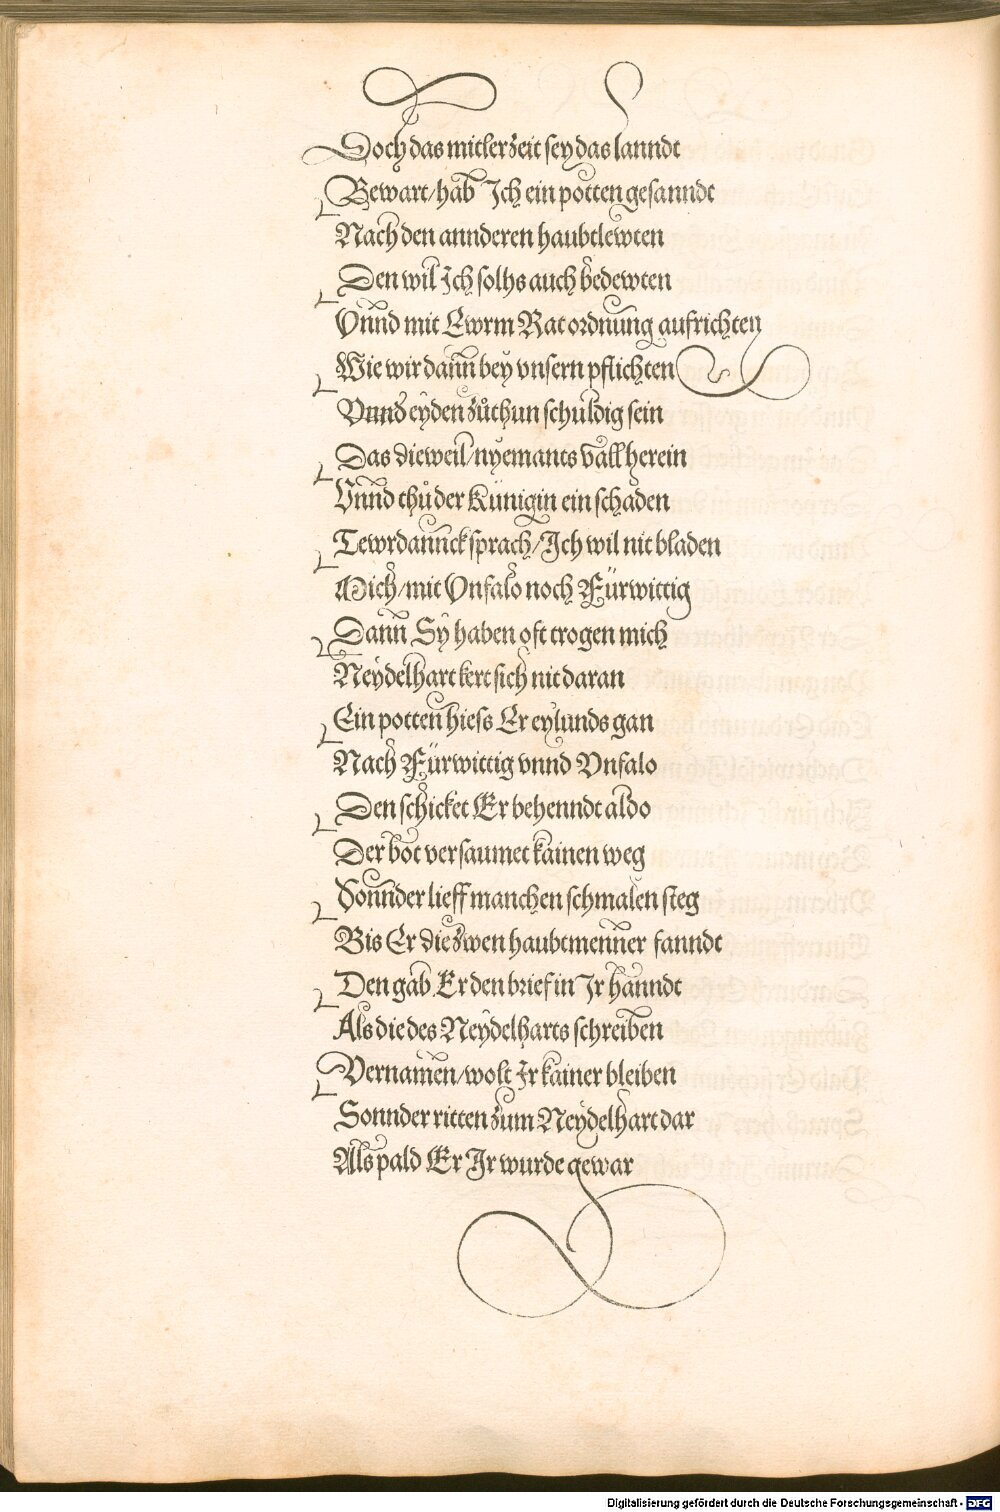 Doch das mitlerzeit sey das lanndt
Bewart/hab Ich ein potten gesanndt
Nach den annderen haubtlewten
Den wil Ich solhs auch bedewten
Vnnd mit Ewrm Rat ordnung aufrichten
Wie wir dann bey vnsern pflichten
Vnnd eyden zůthun schuldig sein
Das dieweil/nyemants vall herein
Vnnd thů der Künigin ein schaden
Tewrdannck sprach/Ich wil nit bladen
Mich/mit Vnfalo noch Fürwittig
Dann Sy haben oft trogen mich
Neydelhart kert sich nit daran
Ein potten hiess Er eylunds gan
Nach Fürwittig vnnd Vnfalo
Den schicket Er behenndt aldo
Der bot versaumet kainen weg
Sonnder lieff manchen schmalen steg
Bis Er die zwen haubtmenner fanndt
Den gab Er den brief in Ir hanndt
Als die des Neydelharts schreiben
Vernamen/wolt Ir kainer bleiben
Sonnder ritten zum Neydelhart dar
Als pald Er Ir wurde gewar
Digitalisierung gefördert durch die Deutsche Forschungsgemeinschaft - DFG